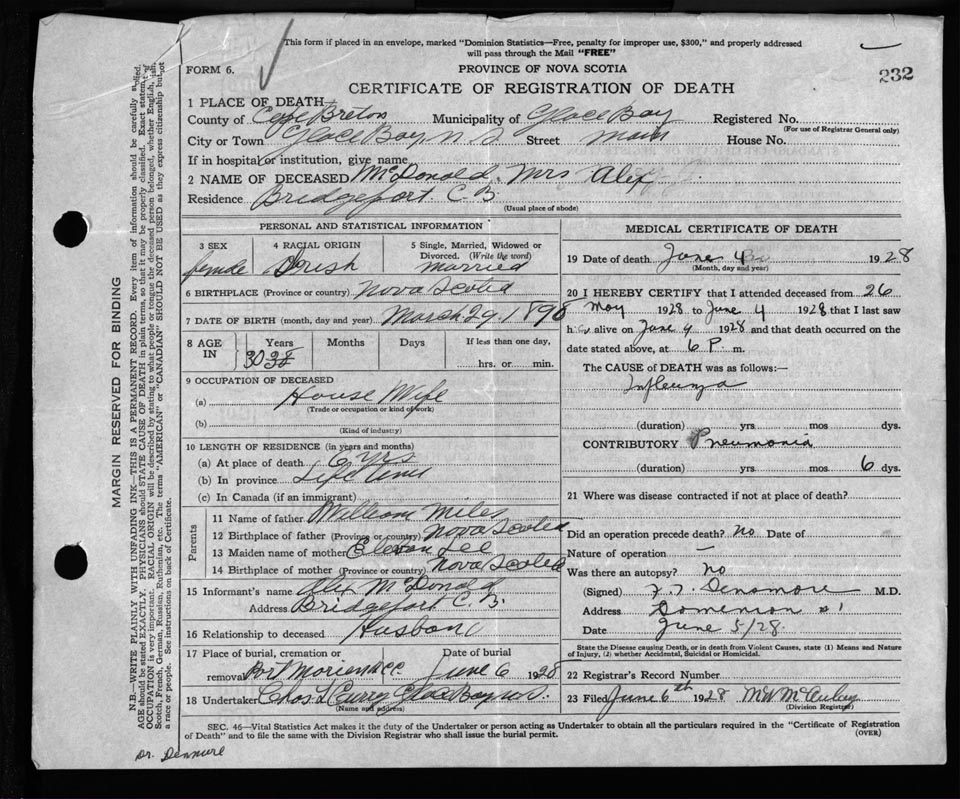 This form if placed in an envelope, marked "Dominion Statistics—Free, penalty for improper use, $300," and properly addressed
will pass through the Mail "FREE"
FORM 6.
PROVINCE OF NOVA SCOTIA
232
CERTIFICATE OF REGISTRATION OF DEATH
1 PLACE OF DEATH—
County of Cape Breton Municipality of Glace Bay Registered No.
(For use of Registrar General only)
City or Town Glace Bay N S Street Main House No.
If in hospital or institution, give name
2 NAME OF DECEASED McDonald, Mrs Alex
Residence Bridgeport C. B.
(Usual place of abode)
PERSONAL AND STATISTICAL INFORMATION
3 SEX 4 RACIAL ORIGIN 5 Single, Married, Widowed or Divorced. (Write the word)
female Irish married
6 BIRTHPLACE (Province or country) Nova Scotia
7 DATE OF BIRTH (month, day and year) March 29. 1898
8 AGE IN Years Months Days If less than one day,
30 38 hrs. or min.
9 OCCUPATION OF DECEASED
(a) House Wife
(Trade or occupation or kind of work)
(b)
(Kind of industry)
10 LENGTH OF RESIDENCE (in years and months)
(a) At place of death 6 yrs
(b) In province Life time
(c) In Canada (if an immigrant)
Parents
11 Name of father William Miles
12 Birthplace of father (Province or country) Nova Scotia
13 Maiden name of mother Lee
14 Birthplace of mother (Province or country) Nova Scotia
15 Informant's name Alex McDonald
Address Bridgeport C. B.
16 Relationship to deceased Husband
17 Place of burial, cremation or removal Date of burial
Port Morien June 6 1928
18 Undertaker Chas L Curry Glace Bay N. S.
(Name and address)
MEDICAL CERTIFICATE OF DEATH
19 Date of death June 4 1928
(Month, day and year)
20 I HEREBY CERTIFY that I attended deceased from 26
May 1928 to June 4 1928 that I last saw
her alive on June 4 1928 and that death occurred on the
date stated above, at 6 P. m.
The CAUSE of DEATH was as follows:—
Influenza
(duration) yrs mos dys.
CONTRIBUTORY Pneumonia
(duration) yrs. mos. 6 dys.
21 Where was disease contracted if not at place of death?
Did an operation precede death? no Date of
Nature of operation —
Was there an autopsy? no
(Signed) Densmore M.D.
Address Dominion #1
Date June 5/28.
State the Disease causing Death, or in death from Violent Causes, state (1) Means and Nature
of Injury, (2) whether Accidental, Suicidal or Homicidal.
22 Registrar's Record Number
23 Filed June 6th 1928
(Division Registrar)
SEC. 46—Vital Statistics Act makes it the duty of the Undertaker or person acting as Undertaker to obtain all the particulars required in the "Certificate of Registration
of Death" and to file the same with the Division Registrar who shall issue the burial permit.
(OVER)
MARGIN RESERVED FOR BINDING
N.B.—WRITE PLAINLY WITH UNFADING INK—THIS IS A PERMANENT RECORD. Every item of information should be carefully supplied.
AGE should be stated EXACTLY. PHYSICIANS should STATE CAUSE OF DEATH in plain terms, so that it may be properly classified. Exact statement of
OCCUPATION is very important. RACIAL ORIGIN will be described by stating to what people or tongue the deceased person belonged, whether English, Irish,
Scotch, French, German, Russian, Ruthenian, etc. The terms "AMERICAN" or "CANADIAN" SHOULD NOT BE USED as they express citizenship but not
a race or people. See instructions on back of Certificate.
Dr. Denmore